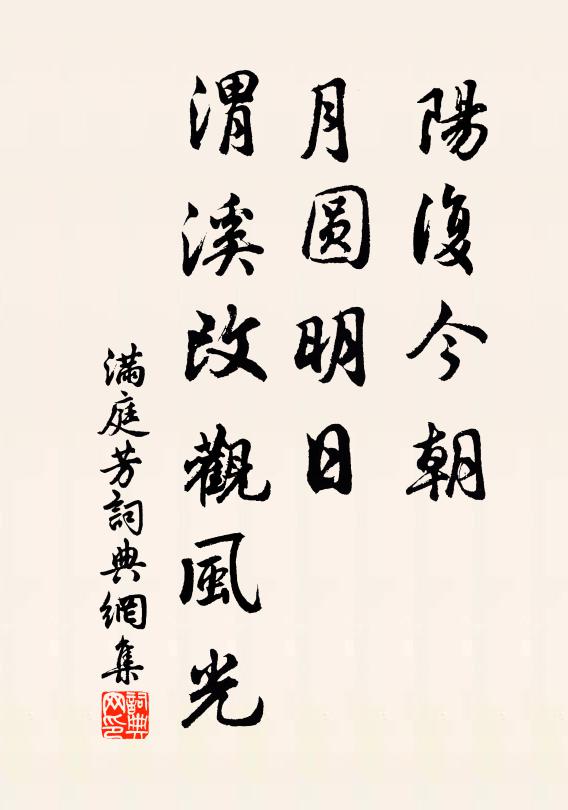 陽復今朝
月圆明日
渭溪改觀風光
滿庭芳詞典網集
詞典网印